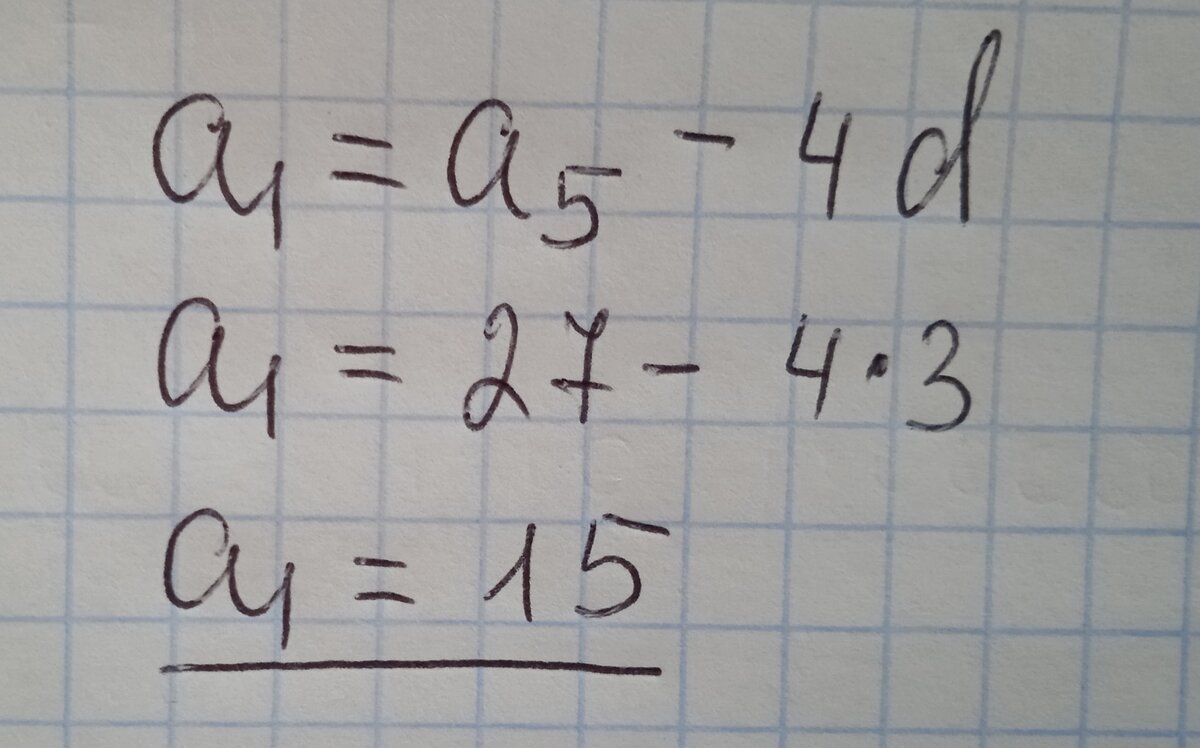 a₁ = a₅ - 4d
a₁ = 27 - 4·3
a₁ = 15